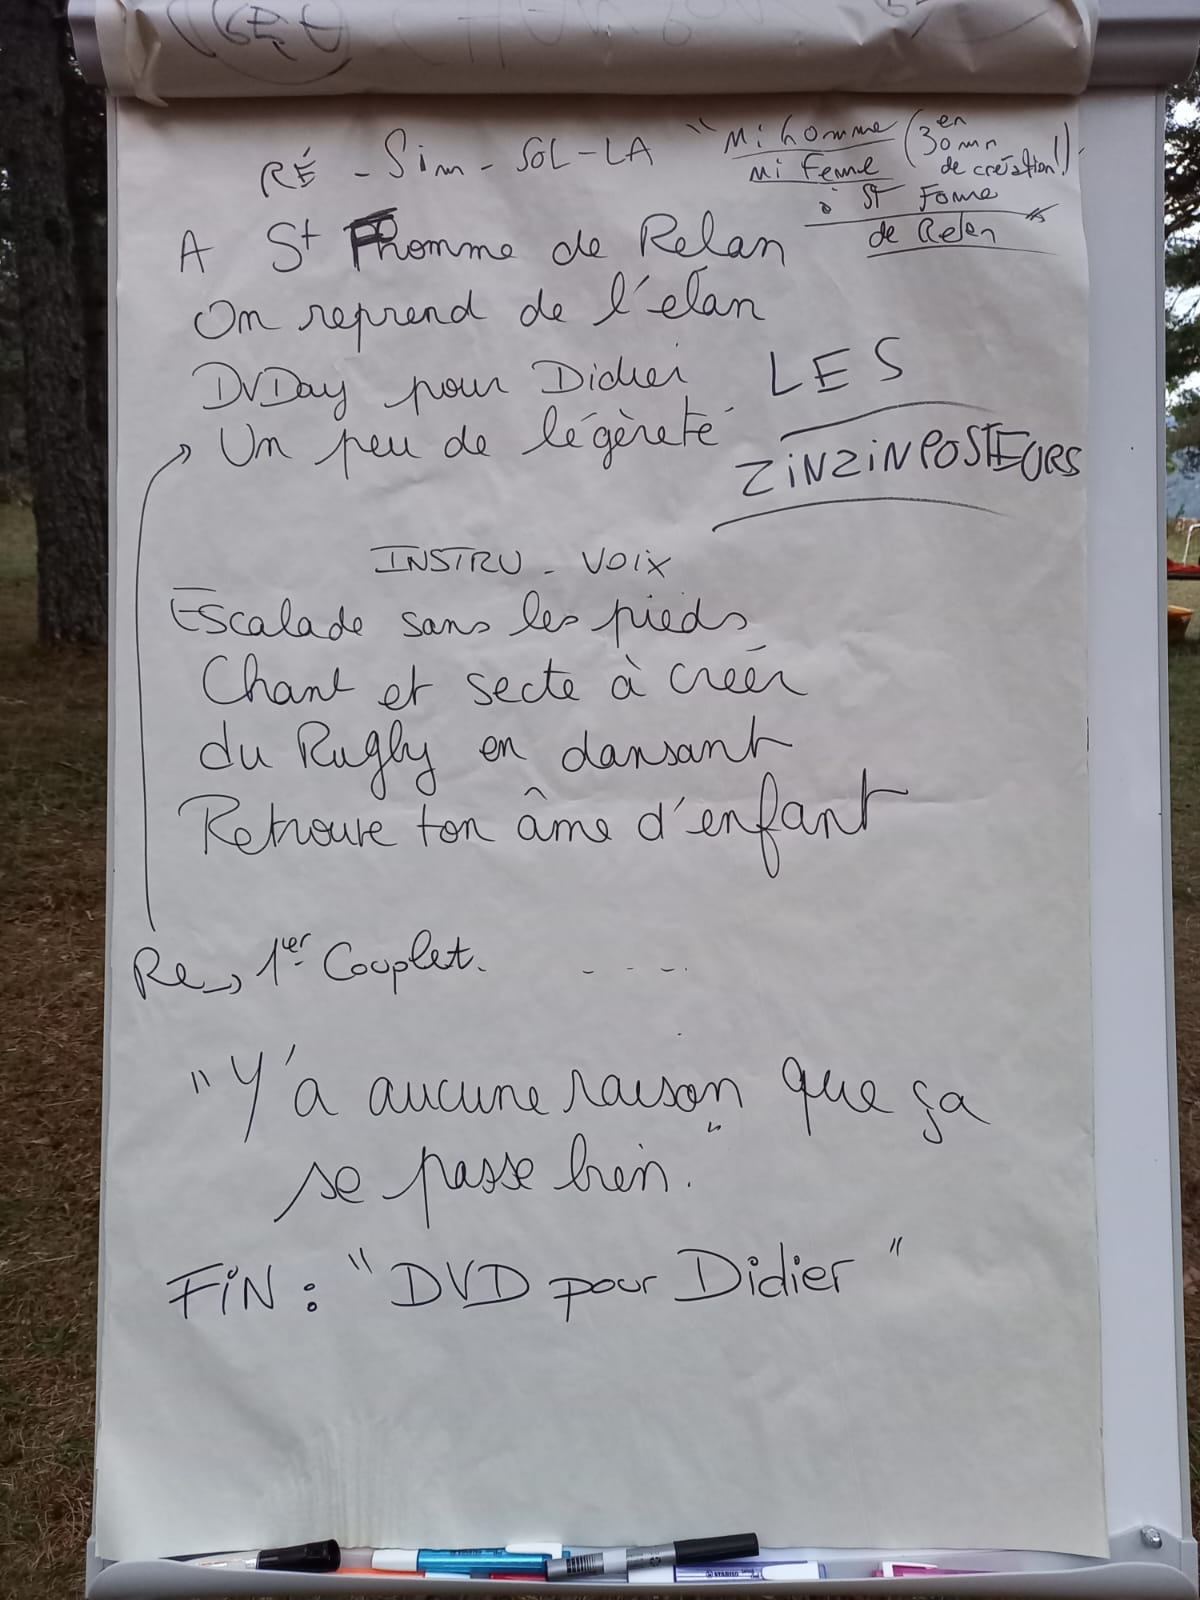 RÉ - Sim - SOL - LA
"Mi homme
mi Femme
à St Fome
de Relen"
(en
30 mn
de création!)
A St Fhomme de Relan
On reprend de l'élan
DVDay pour Didier
Un peu de légèreté
LES
ZiNZiNPOSTEURS
INSTRU - VOIX
Escalade sans les pieds
Chant et secte à créer
du Rugby en dansant
Retrouve ton âme d'enfant
Re → 1er Couplet. - - - -.
"Y'a aucune raison que ça
se passe bien."
FiN : "DVD pour Didier"
STABILO